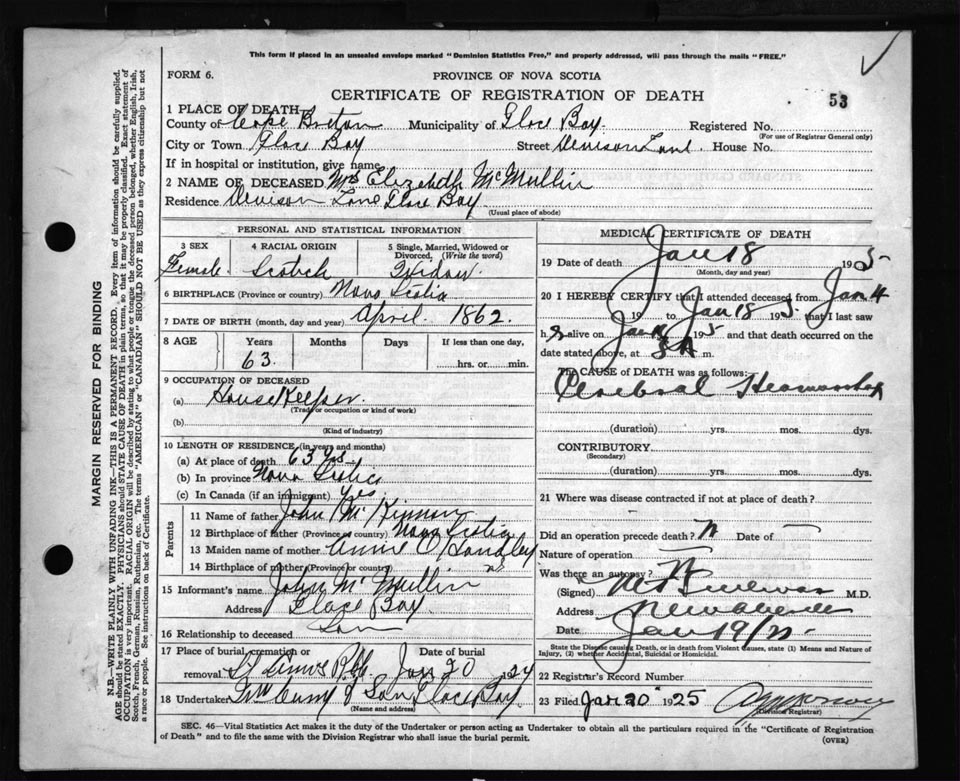 This form if placed in an unsealed envelope marked "Dominion Statistics Free," and properly addressed, will pass through the mails "FREE."
FORM 6. PROVINCE OF NOVA SCOTIA
CERTIFICATE OF REGISTRATION OF DEATH 53
1 PLACE OF DEATH
County of Cape Breton Municipality of Glace Bay Registered No.
(For use of Registrar General only)
City or Town Glace Bay Street Lane House No.
If in hospital or institution, give name
2 NAME OF DECEASED Mrs Elizabeth McMullin
Residence Lane Glace Bay
(Usual place of abode)
PERSONAL AND STATISTICAL INFORMATION
3 SEX 4 RACIAL ORIGIN 5 Single, Married, Widowed or Divorced, (Write the word)
Female Scotch Widow
6 BIRTHPLACE (Province or country) Nova Scotia
7 DATE OF BIRTH (month, day and year) April 1862
8 AGE Years Months Days If less than one day,
63 hrs. or min.
9 OCCUPATION OF DECEASED
(a) House Keeper
(Trade or occupation or kind of work)
(b)
(Kind of industry)
10 LENGTH OF RESIDENCE (in years and months)
(a) At place of death 63 Yrs
(b) In province Nova Scotia
(c) In Canada (if an immigrant) Yes
Parents
11 Name of father John McKinnon
12 Birthplace of father (Province or country) Nova Scotia
13 Maiden name of mother Annie
14 Birthplace of mother (Province or country)
15 Informant's name John McMullin
Address Glace Bay
16 Relationship to deceased Son
17 Place of burial, cremation or removal Date of burial
Jan 20 1924
18 Undertaker & Son Glace Bay
(Name and address)
MEDICAL CERTIFICATE OF DEATH
19 Date of death Jan 18 1925
(Month, day and year)
20 I HEREBY CERTIFY that I attended deceased from Jan 14
19 to Jan 18 1925 that I last saw
h alive on Jan 1925 and that death occurred on the
date stated above, at m.
The CAUSE OF DEATH was as follows:
Cerebral Hemorrhage
(duration) yrs. mos. dys.
CONTRIBUTORY
(Secondary)
(duration) yrs. mos. dys.
21 Where was disease contracted if not at place of death?
Did an operation precede death? N Date of
Nature of operation
Was there an autopsy? N
(Signed) M.D.
Address New Aberdeen
Date Jan 19/25
State the Disease causing Death, or in death from Violent Causes, state (1) Means and Nature of Injury, (2) whether Accidental, Suicidal or Homicidal.
22 Registrar's Record Number
23 Filed Jan 20 1925
(Division Registrar)
SEC. 46—Vital Statistics Act makes it the duty of the Undertaker or person acting as Undertaker to obtain all the particulars required in the "Certificate of Registration
of Death" and to file the same with the Division Registrar who shall issue the burial permit. (OVER)
MARGIN RESERVED FOR BINDING
N.B.—WRITE PLAINLY WITH UNFADING INK—THIS IS A PERMANENT RECORD. Every item of information should be carefully supplied.
AGE should be stated EXACTLY. PHYSICIANS should STATE CAUSE OF DEATH in plain terms, so that it may be properly classified. Exact statement of
OCCUPATION is very important. RACIAL ORIGIN will be described by stating to what people or tongue the deceased person belonged, whether English, Irish,
Scotch, French, German, Russian, Ruthenian, etc. The terms "AMERICAN" or "CANADIAN" SHOULD NOT BE USED as they express citizenship but not
a race or people. See instructions on back of Certificate.